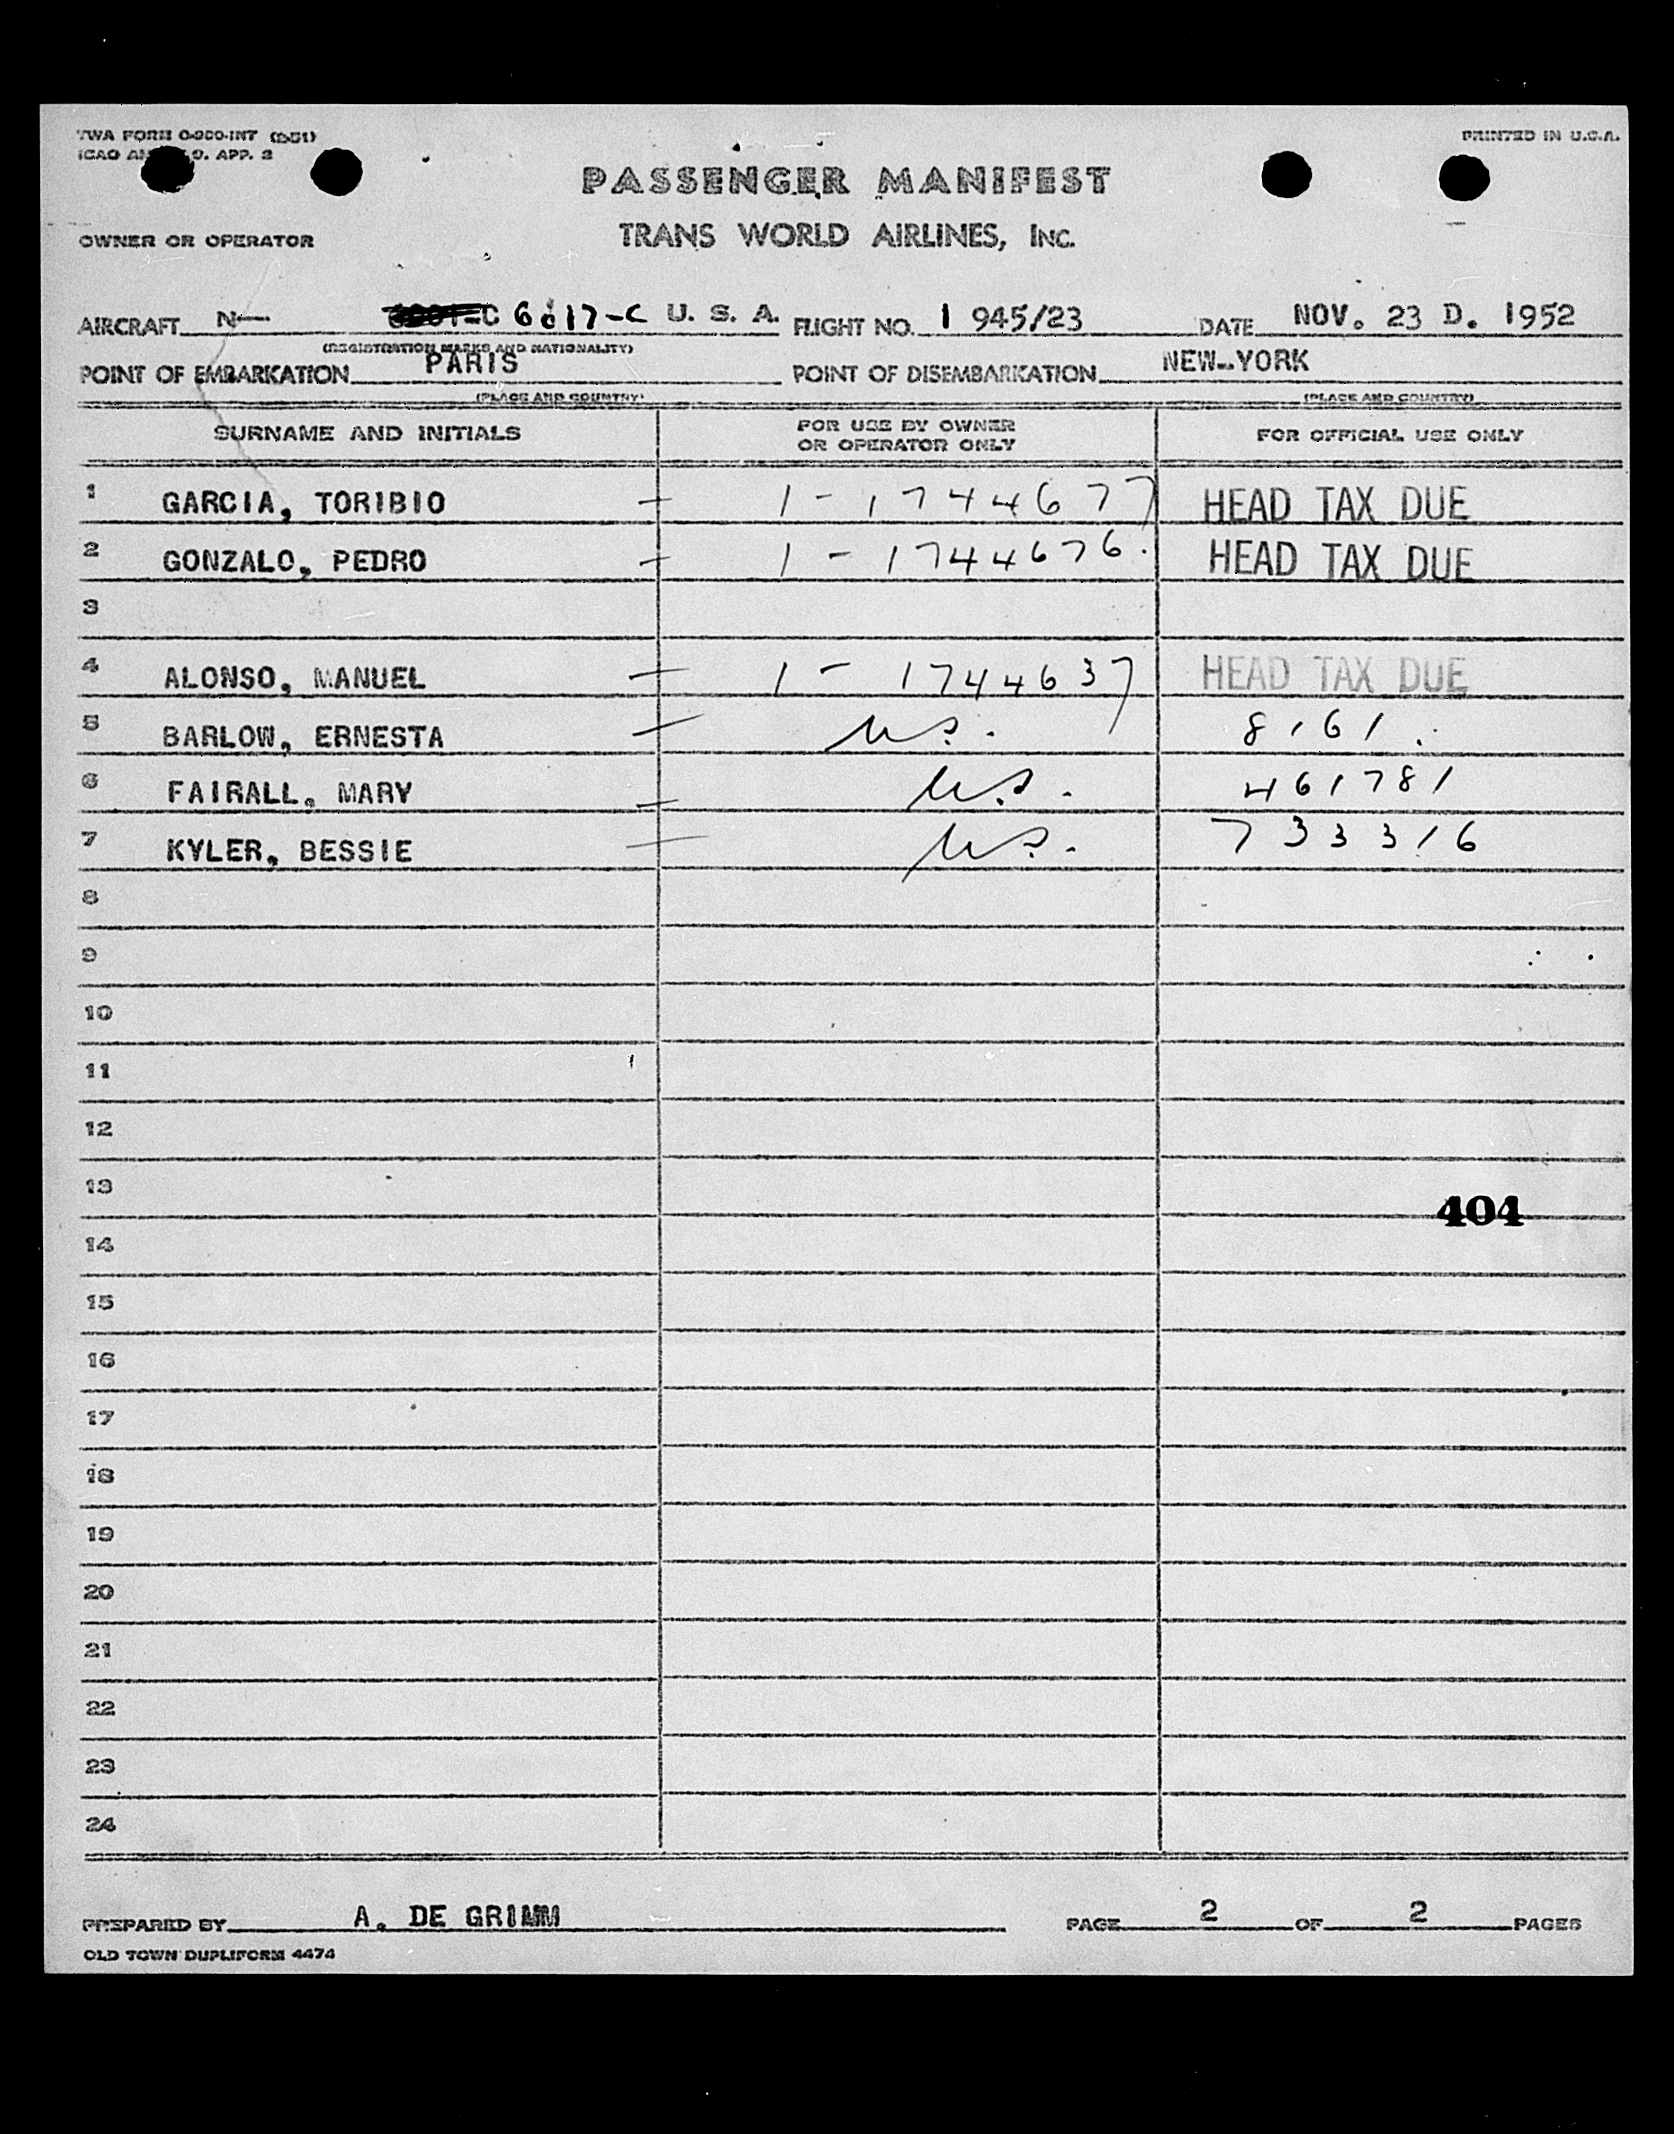 TWA FORM O-900-INT (5-51)
PRINTED IN U.S.A.
ICAO 9. APP. 2
PASSENGER MANIFEST
OWNER OR OPERATOR
TRANS WORLD AIRLINES, INC.
AIRCRAFT N— 6017-C U. S. A. FLIGHT NO. 1 945/23 DATE NOV. 23 D. 1952
(REGISTRATION MARKS AND NATIONALITY)
POINT OF EMBARKATION PARIS POINT OF DISEMBARKATION NEW-YORK
(PLACE AND COUNTRY) (PLACE AND COUNTRY)
SURNAME AND INITIALS FOR USE BY OWNER OR OPERATOR ONLY FOR OFFICIAL USE ONLY
1 GARCIA, TORIBIO — 1 - 1744677 HEAD TAX DUE
2 GONZALO, PEDRO — 1 - 1744676. HEAD TAX DUE
3
4 ALONSO, MANUEL — 1 - 1744637 HEAD TAX DUE
5 BARLOW, ERNESTA — U.S. 8161.
6 FAIRALL, MARY — U.S. 461781
7 KYLER, BESSIE — U.S. 733316
8
9
10
11
12
13
404
14
15
16
17
18
19
20
21
22
23
24
PREPARED BY A. DE GRIMM PAGE 2 OF 2 PAGES
OLD TOWN DUPLIFORM 4474